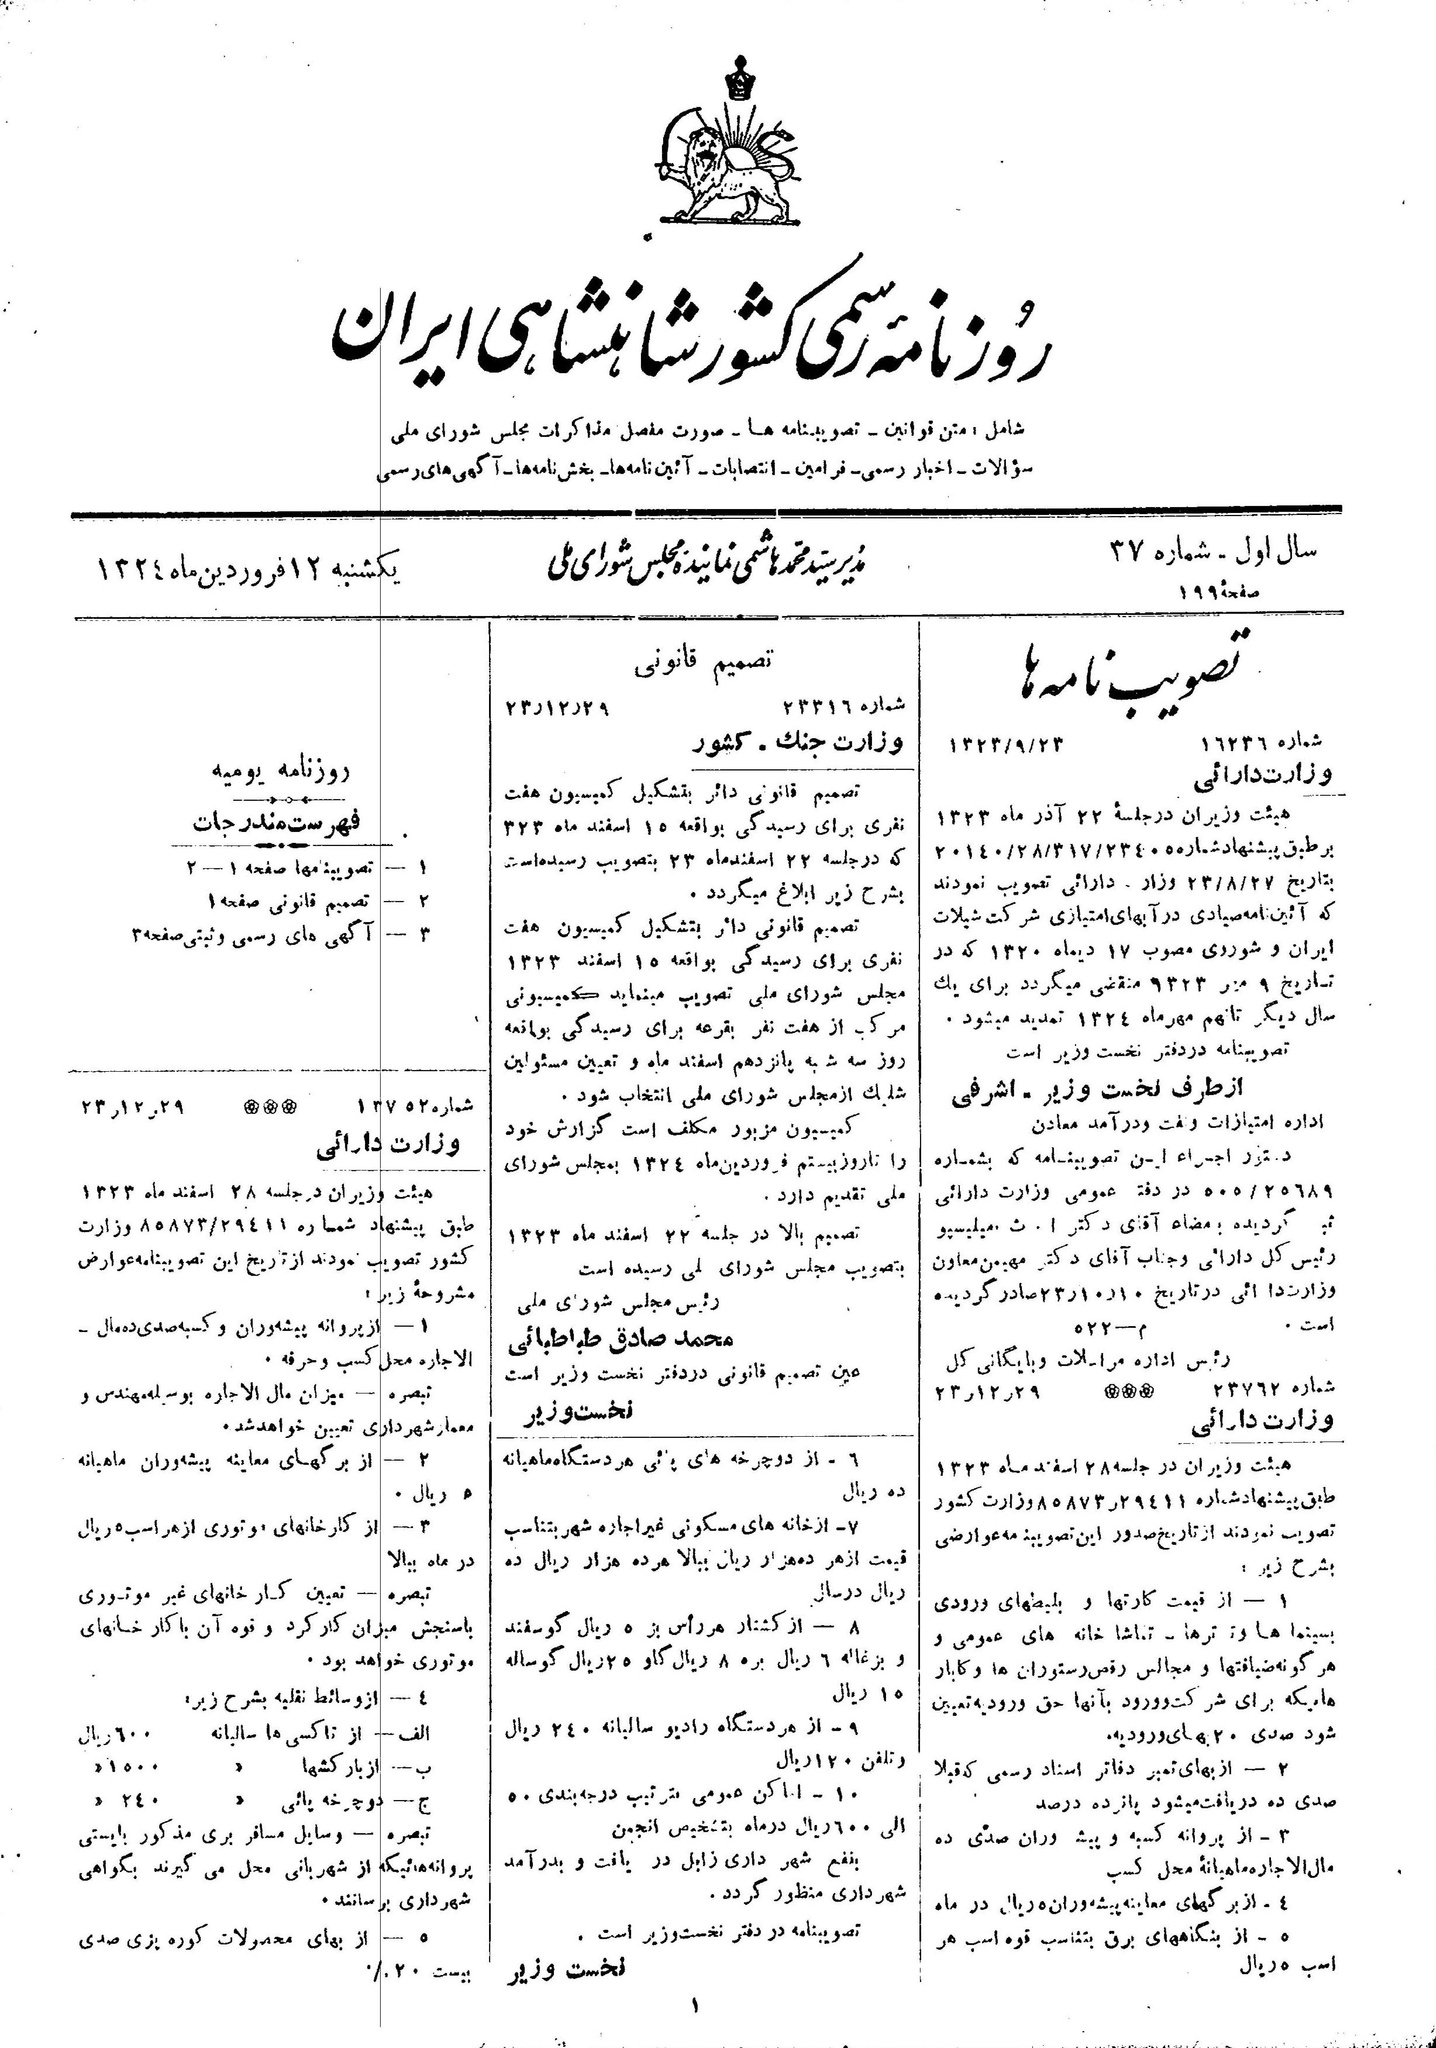 روزنامه رسمی کشور شاهنشاهی ایران
شامل : متن قوانین - تصویبنامه ها - صورت مفصل مذاکرات مجلس شورای ملی
سؤالات - اخبار رسمی - فرامین - انتصابات - آئین نامه‌ها - بخش نامه‌ها - آگهی های رسمی
سال اول - شماره ۳۷
صفحهٔ ۱۹۹
مدیر سید محمد هاشمی نماینده مجلس شورای ملی
یکشنبه ۱۲ فروردین ماه ۱۳۲٤
تصویب نامه ها
شماره ۱٦۲۳٦ ۱۳۲۳/۹/۲۳
وزارت دارائی
هیئت وزیران در جلسهٔ ۲۲ آذر ماه ۱۳۲۳
بر طبق پیشنهاد شماره ۲۰۱٤۰/۲۸/۳۱۷/۲۳٤۰۵
بتاریخ ۲۳/۸/۲۷ وزار . دارائی تصویب نمودند
که آئین نامه صیادی در آبهای امتیازی شرکت شیلات
ایران و شوروی مصوب ۱۷ دیماه ۱۳۲۰ که در
تاریخ ۹ مهر ۱۳۲۳ منقضی میگردد برای یك
سال دیگر تا نهم مهر ماه ۱۳۲٤ تمدید میشود .
تصویبنامه در دفتر نخست وزیر است
از طرف نخست وزیر - اشرفی
اداره امتیازات و نفت و درآمد معادن
دستور اجراء این تصویبنامه که بشماره
۵۰۰/۲۵٦۸۹ در دفتر عمومی وزارت دارائی
ثبت گردیده بامضاء آقای دکتر ا . ث . میلیسپو
رئیس کل دارائی و جناب آقای دکتر مهیمن معاون
وزارت دارائی در تاریخ ۲۳ر۱۰ر۱۰ صادر گردیده
است . م—۵۲۲
رئیس اداره مراسلات و بایگانی کل
شماره ۲۳۷٦۲ ۲۳ر۱۲ر۲۹
وزارت دارائی
هیئت وزیران در جلسه ۲۸ اسفند ماه ۱۳۲۳
طبق پیشنهاد شماره ۲۹٤۱۱ر۸۵۸۷۳ وزارت کشور
تصویب نمودند از تاریخ صدور این تصویبنامه عوارضی
بشرح زیر :
۱ — از قیمت کارتها و بلیطهای ورودی
بسینما ها و تأترها - تماشا خانه های عمومی و
هر گونه ضیافتها و مجالس رقص رستوران ها و کابار
هائیکه برای شرکت و ورود بآنها حق ورودیه تعیین
شود صدی ۲۰ بهای ورودیه.
۲ — از بهای تمبر دفاتر اسناد رسمی که قبلا
صدی ده دریافت میشود پانزده درصد
۳ - از پروانه کسبه و پیشه وران صدی ده
مال الاجاره ماهیانهٔ محل کسب
٤ - از برگهای معاینه پیشه وران ۵ ریال در ماه
۵ - از بنگاههای برق بتناسب قوه اسب هر
اسب ۵ ریال
تصمیم قانونی
شماره ۲۳۳۱٦ ۲۳ر۱۲ر۲۹
وزارت جنك - کشور
تصمیم قانونی دائر بتشکیل کمیسیون هفت
نفری برای رسیدگی بواقعه ۱۵ اسفند ماه ۳۲۳
که در جلسه ۲۲ اسفند ماه ۲۳ بتصویب رسیده است
بشرح زیر ابلاغ میگردد .
تصمیم قانونی دائر بتشکیل کمیسیون هفت
نفری برای رسیدگی بواقعه ۱۵ اسفند ۱۳۲۳
مجلس شورای ملی تصویب مینماید کمیسیونی
مرکب از هفت نفر بقرعه برای رسیدگی بواقعه
روز سه شنبه پانزدهم اسفند ماه و تعیین مسئولین
شلیك از مجلس شورای ملی انتخاب شود .
کمیسیون مزبور مکلف است گزارش خود
را تا روز بیستم فروردین ماه ۱۳۲٤ بمجلس شورای
ملی تقدیم دارد .
تصمیم بالا در جلسه ۲۲ اسفند ماه ۱۳۲۳
بتصویب مجلس شورای ملی رسیده است
رئیس مجلس شورای ملی
محمد صادق طباطبائی
عین تصمیم قانونی در دفتر نخست وزیر است
نخست وزیر
٦ - از دوچرخه های پائی هر دستگاه ماهیانه
ده ریال
۷- از خانه های مسکونی غیر اجاره شهر بتناسب
قیمت از هر ده هزار ریال ببالا هر ده هزار ریال ده
ریال در سال
۸ — از کشتار هر رأس بز ۵ ریال گوسفند
و بزغاله ٦ ریال بره ۸ ریال گاو ۲۵ ریال گوساله
۱۵ ریال
۹ - از هر دستگاه رادیو سالیانه ۲٤۰ ریال
و تلفن ۱۲۰ ریال
۱۰ - اماکن عمومی بترتیب درجه بندی ۵۰
الی ٦۰۰ ریال در ماه بتشخیص انجمن
بنفع شهر داری زابل در یافت و بدرآمد
شهرداری منظور گردد .
تصویبنامه در دفتر نخست وزیر است .
نخست وزیر
روزنامه یومیه
فهرست مندرجات
۱ — تصویبنامها صفحه ۱ — ۲
۲ — تصمیم قانونی صفحه ۱
۳ — آگهی های رسمی و ثبتی صفحه ۳
شماره ۱۳۷۵۲ ۲۳ر۱۲ر۲۹
وزارت دارائی
هیئت وزیران در جلسه ۲۸ اسفند ماه ۱۳۲۳
طبق پیشنهاد شماره ۸۵۸۷۳/۲۹٤۱۱ وزارت
کشور تصویب نمودند از تاریخ این تصویبنامه عوارض
مشروحهٔ زیر :
۱— از پروانه پیشه وران و کسبه صدی ده مال -
الاجاره محل کسب و حرفه .
تبصره — میزان مال الاجاره بوسیله مهندس و
معمار شهرداری تعیین خواهد شد .
۲ — از برگهای معاینه پیشه وران ماهیانه
۵ ریال .
۳ — از کارخانهای موتوری از هر اسب ۵ ریال
در ماه ببالا
تبصره — تعیین کار خانهای غیر موتوری
باسنجش میزان کارکرد و قوه آن با کار خانهای
موتوری خواهد بود .
٤ — از وسائط نقلیه بشرح زیر:
الف — از تاکسی ها سالیانه ٦۰۰ ریال
ب — از بارکشها » ۱۵۰۰ »
ج — دوچرخه پائی » ۲٤۰ »
تبصره — وسایل مسافر بری مذکور بایستی
پروانه هائیکه از شهربانی محل می گیرند بگواهی
شهرداری برسانند .
۵ — از بهای محصولات کوره پزی صدی
بیست ۲۰٪
۱